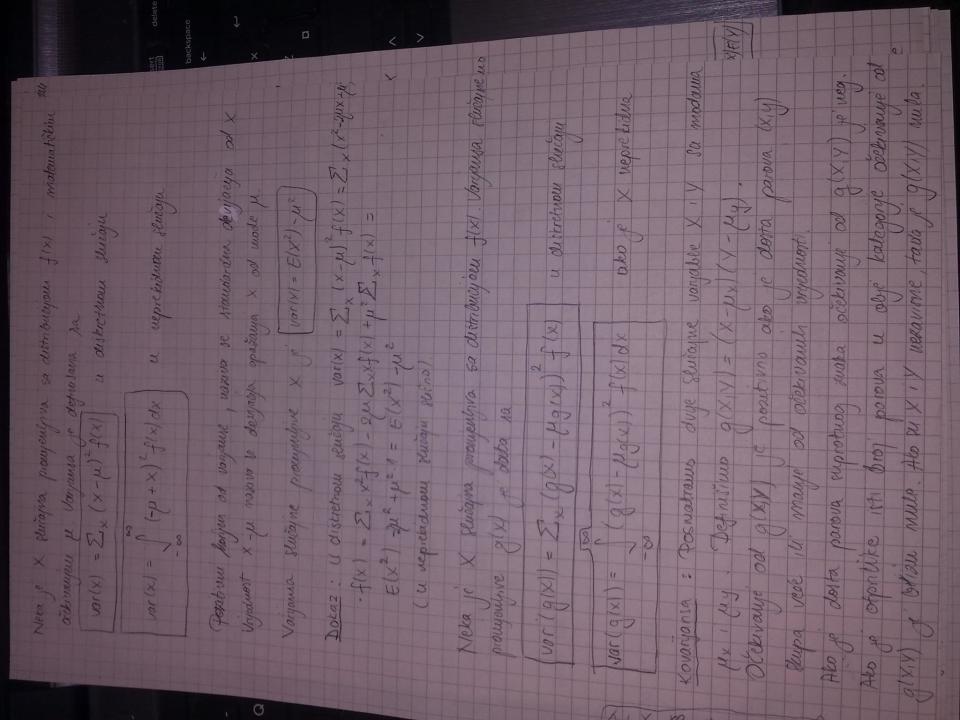 Neka je X slučajna promjenjiva sa distribucijom f(x) i matematičkim
očekivanjem μ. Varijansa je definirana sa
var(x) = Σx (x-μ)² f(x) u diskretnom slučaju
var(x) = ∫ -∞ ∞ (-μ+x)² f(x)dx u neprekidnom slučaju
Pozitivni korijen od varijanse, naziva se standardna devijacija od X
Vrijednost x-μ naziva se devijacija opažanja X od mode μ.
Varijansa slučajne promjenjive X je var(x) = E(X²)-μ²
Dokaz: U diskretnom slučaju var(x) = Σx (x-μ)² f(x) = Σx (x²-2μx+μ²)
·f(x) = Σx x²f(x) - 2μ Σx xf(x) + μ² Σx f(x) =
E(x²) -2μ² + μ²·1 = E(x²) -μ²
(u neprekidnom slučaju slično)
Neka je X slučajna promjenjiva sa distribucijom f(x). Varijansa slučajne
promjenjive g(x) je data sa
var(g(x)) = Σx (g(x) - μg(x))² f(x) u diskretnom slučaju
var(g(x)) = ∫ -∞ ∞ (g(x) - μg(x))² f(x)dx ako je X neprekidna
Kovarijansa: Posmatramo dvije slučajne varijable X i Y sa modama
μx i μy. Definišimo g(X,Y) = (X-μx)(Y-μy).
Očekivanje od g(X,Y) je pozitivno ako je dosta parova (x,y)
skupa veće ili manje od očekivanih vrijednosti.
Ako je dosta parova suprotnog znaka očekivanje od g(X,Y) je neg.
Ako je otprilike isti broj parova u obje kategorije očekivanje od
g(X,Y) je blizu nula. Ako su X i Y nezavisne, tada je g(X,Y) nula.
delete
backspace
Q